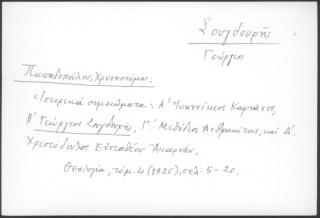 Σουγδουρῆς
Γεώργιος
Παπαδοπούλου, Χρυσοστόμου:
«Ἱστορικὰ σημειώματα: Α' Ἰωαννίκιος Καρτάνος,
Β' Γεώργιος Σουγδουρῆς, Γ' Μεθόδιος Ἀνθρακίτης, καὶ Δ'
Χριστόδουλος Εὐσταθίου Ἀκαρνάν.
Θεολογία, τόμ. 4 (1926), σελ. 5-20.